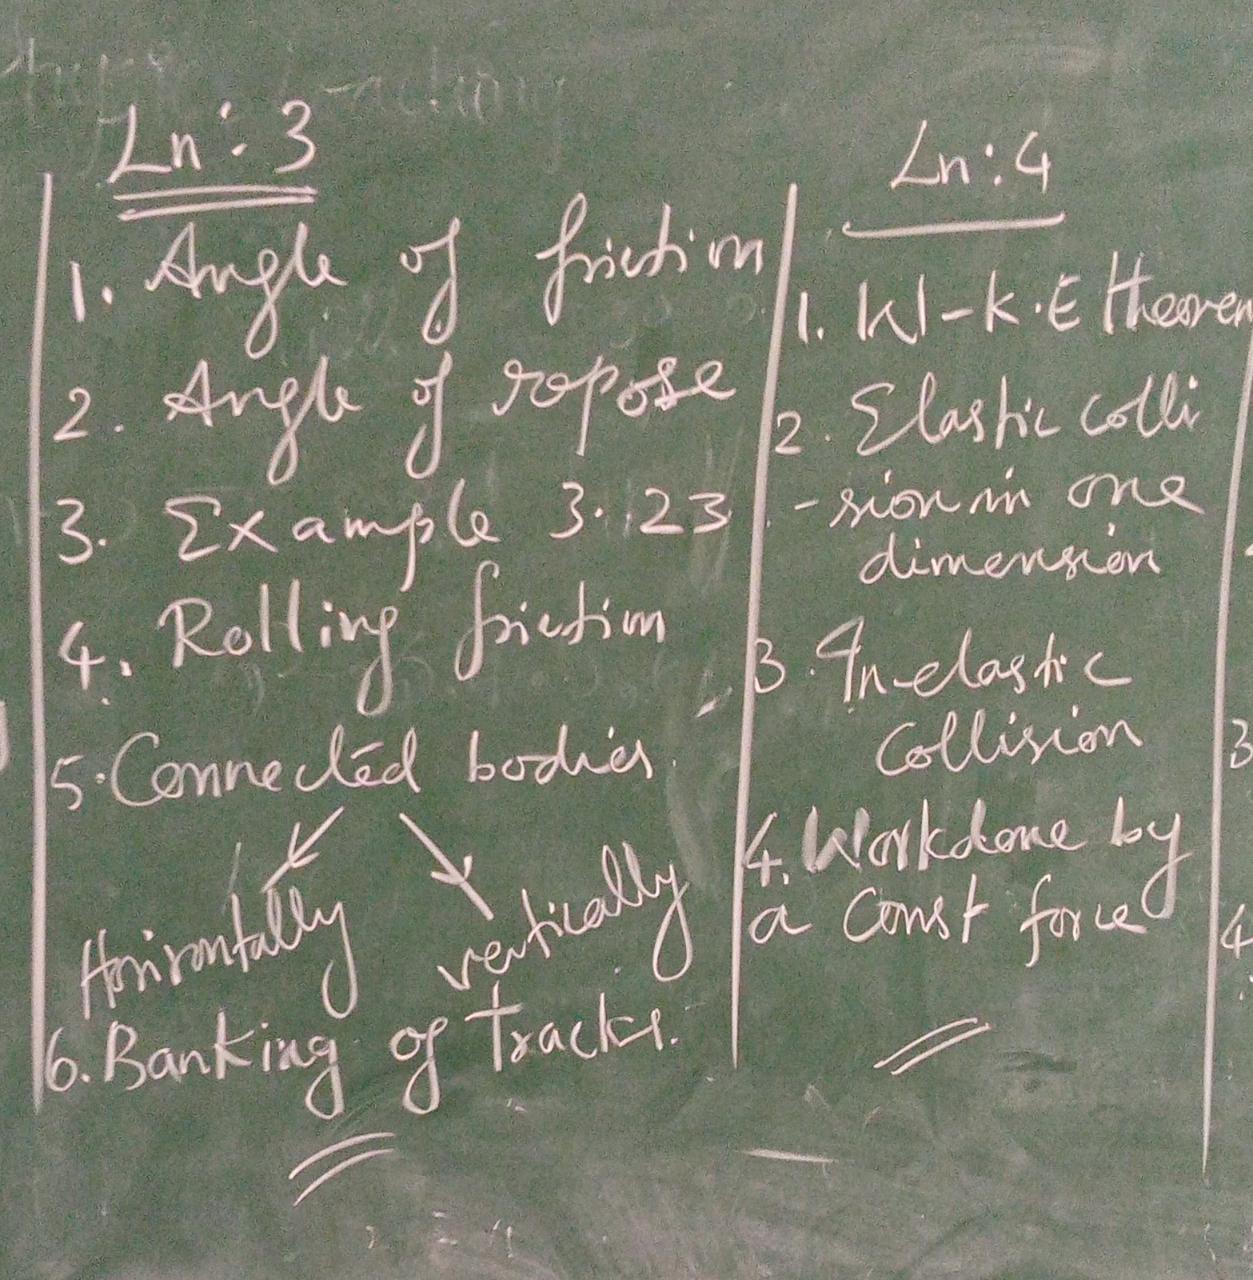 Ln: 3
1. Angle of friction
2. Angle of ropose
3. Example 3.23
4. Rolling friction
5. Connected bodies.
Horizontally vertically
6. Banking of Tracks.
Ln: 4
1. W-K.E theorem
2. Elastic colli
-sion in one
dimension
3. In-elastic
Collision
4. Workdone by
a Const force
3
4